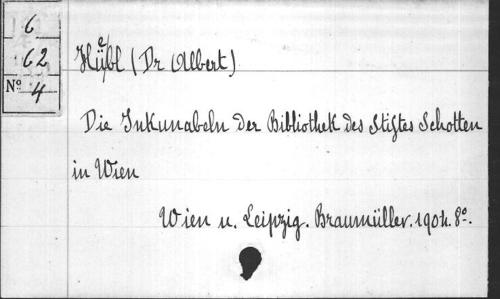 6
62
Nº 4
Hübl (Dr Albert)
Die Inkunabeln der Bibliothek des Stiftes Schotten
in Wien
Wien u. Leipzig. Braumüller. 1904. 8º.